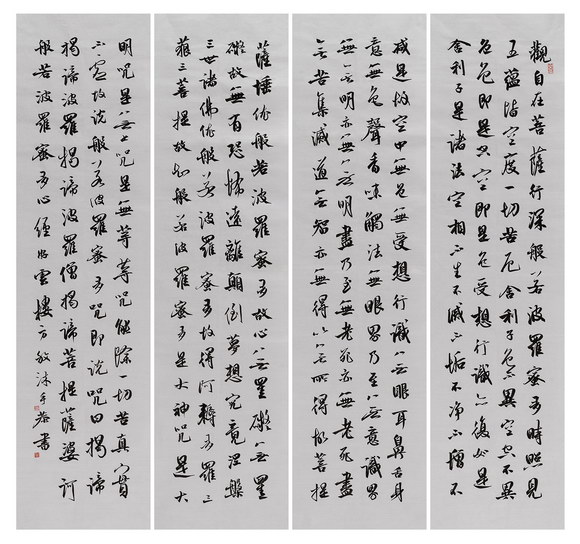 觀自在菩薩行深般若波羅蜜多時照見
五蘊皆空度一切苦厄舍利子色不異空空不異
色色即是空空即是色受想行識亦復如是
舍利子是諸法空相不生不滅不垢不淨不增不
减是故空中無色無受想行識無眼耳鼻舌身
意無色聲香味觸法無眼界乃至無意識界
無無明亦無無明盡乃至無老死亦無老死盡
無苦集滅道無智亦無得以無所得故菩提
薩埵依般若波羅蜜多故心無罣礙無罣
礙故無有恐怖遠離顛倒夢想究竟涅槃
三世諸佛依般若波羅蜜多故得阿耨多羅三
藐三菩提故知般若波羅蜜多是大神咒是大
明咒是無上咒是無等等咒能除一切苦真實
不虛故說般若波羅蜜多咒即說咒曰揭諦
揭諦波羅揭諦波羅僧揭諦菩提薩婆訶
般若波羅蜜多心經雲樓方敏沐手恭書